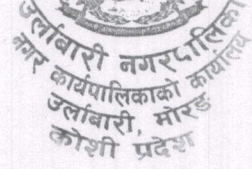 उर्लाबारी नगरपालिका
नगर कार्यपालिकाको कार्यालय
उर्लाबारी, मोरङ
कोशी प्रदेश